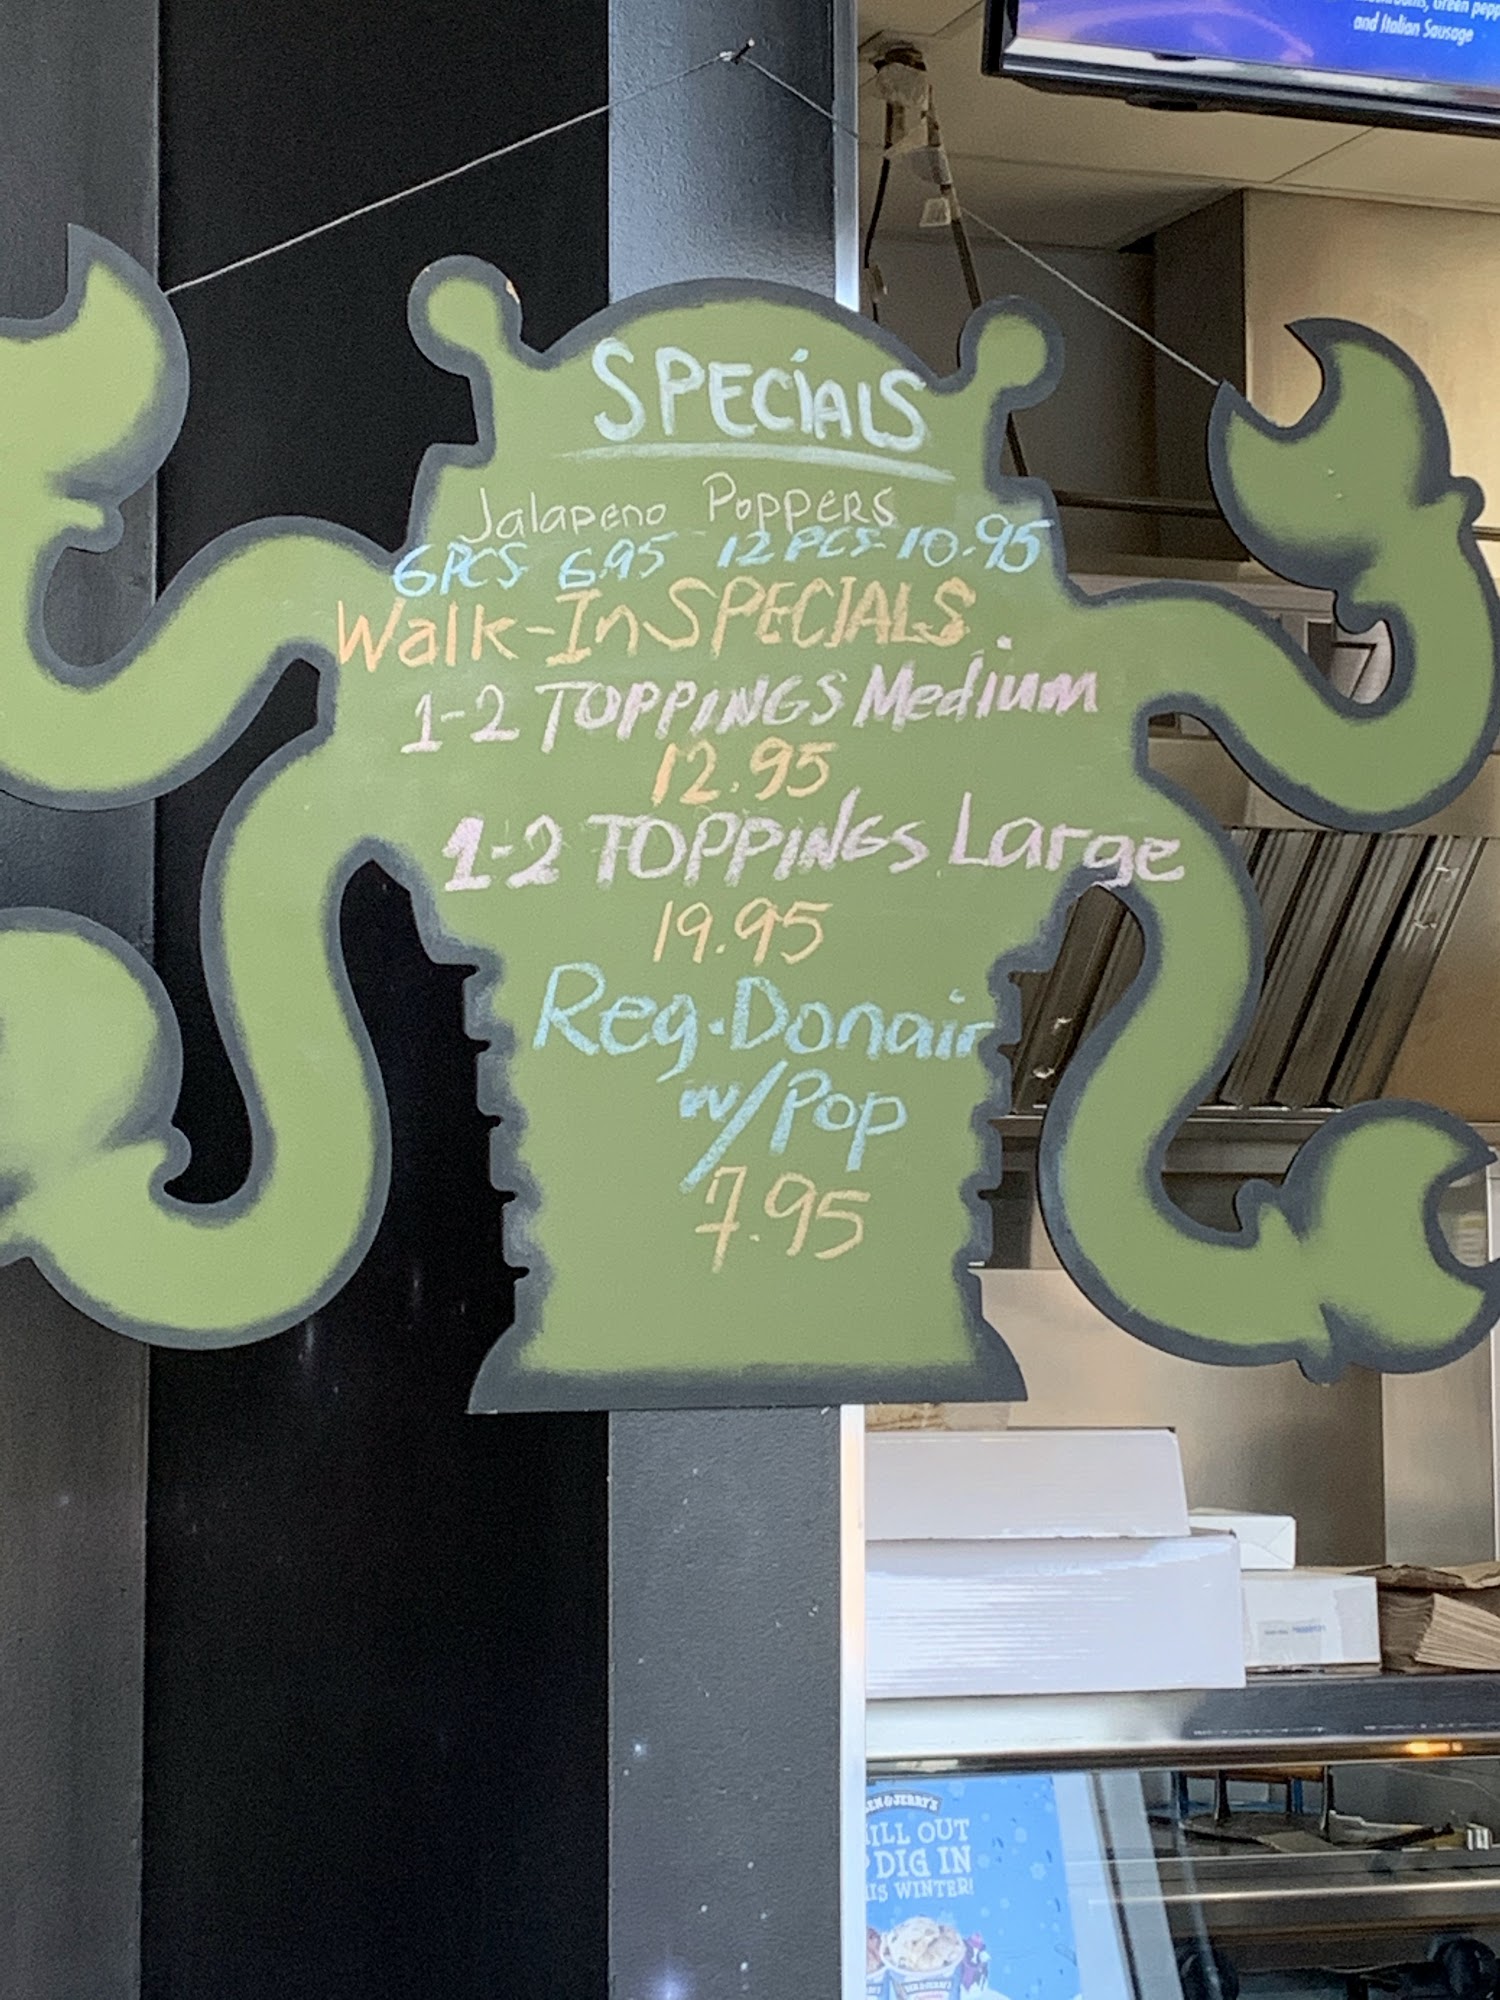 Green
and Italian Sausage
SPECiALS
Jalapeno Poppers
6PCS 6.95 12PCS 10.95
Walk-In SPECIALS
1-2 TOPPINGS Medium
12.95
1-2 TOPPINGS Large
19.95
Reg. Donair
w/Pop
7.95
7
& JERRY'S
OUT
DIG IN
WINTER!
BEN & JERRY'S